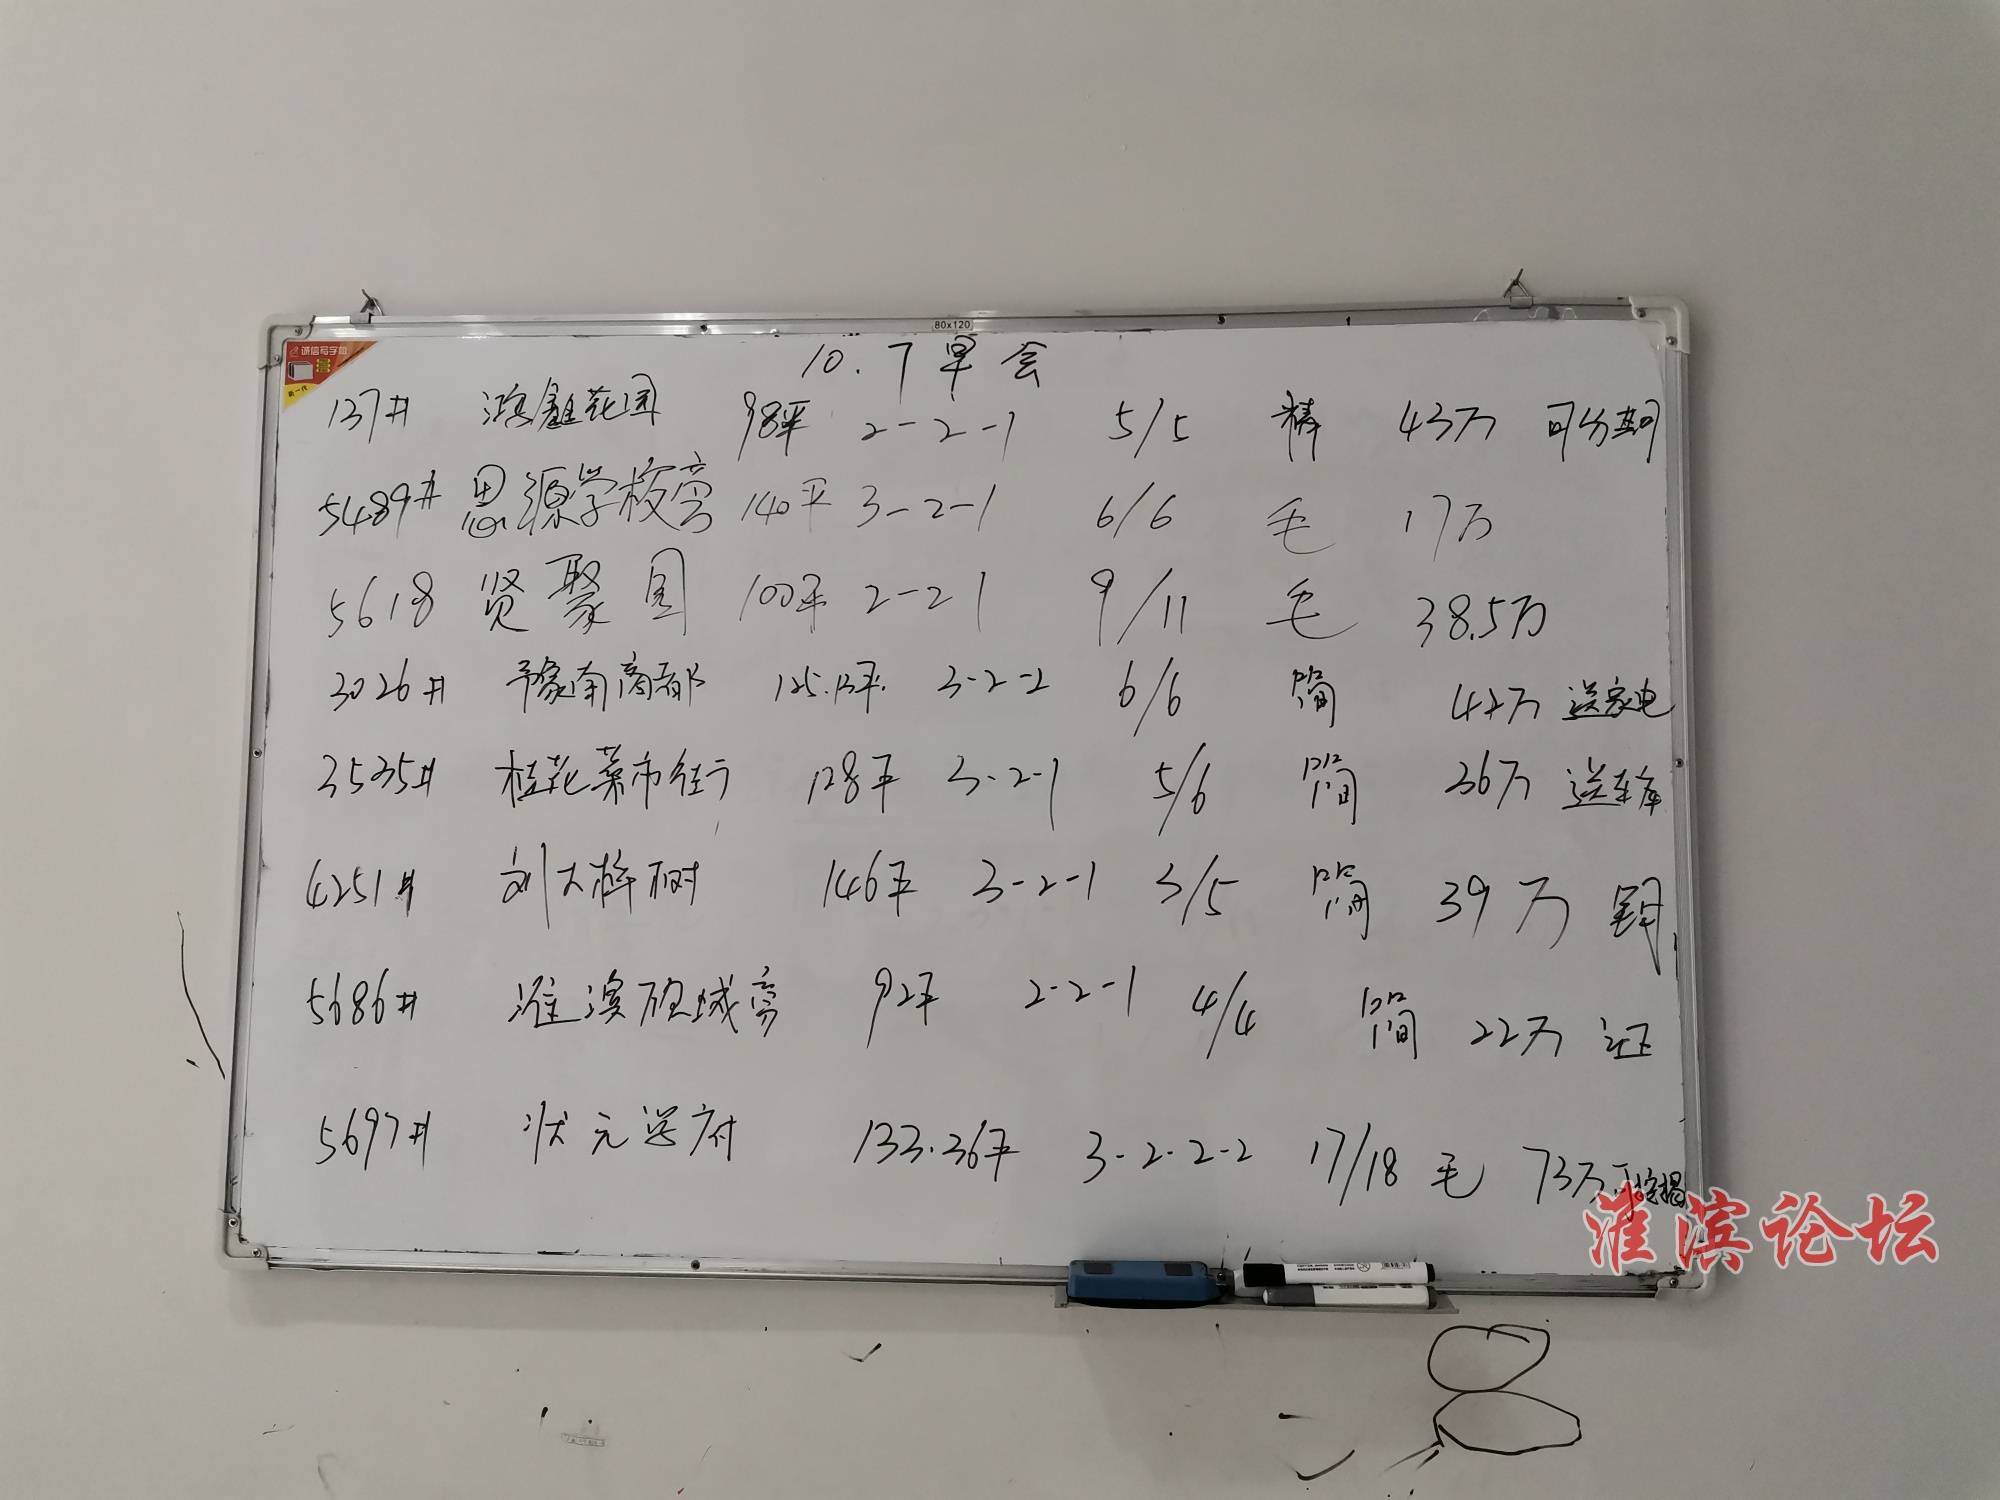 80x120
诚信写字板
新一代
10.7早会
137# 鸿鑫花园 98平 2-2-1 5/5 精 43万 可分期
5489# 思源学校旁 140平 3-2-1 6/6 毛 17万
5618 贤聚园 100平 2-2 1 9/11 毛 38.5万
3026# 豫南商都 125.13平. 3-2-2 6/6 简 42万 送家电
3535# 桂花菜市街 128平 3-2-1 5/6 简 36万 送车库
4251# 刘大梓树 146平 3-2-1 3/5 简 39万
5686# 淮滨 城旁 92平 2-2-1 4/4 简 22万 证
5697# 状元学府 133.36平 3-2-2-2 17/18 毛 73万 可按揭
淮滨论坛